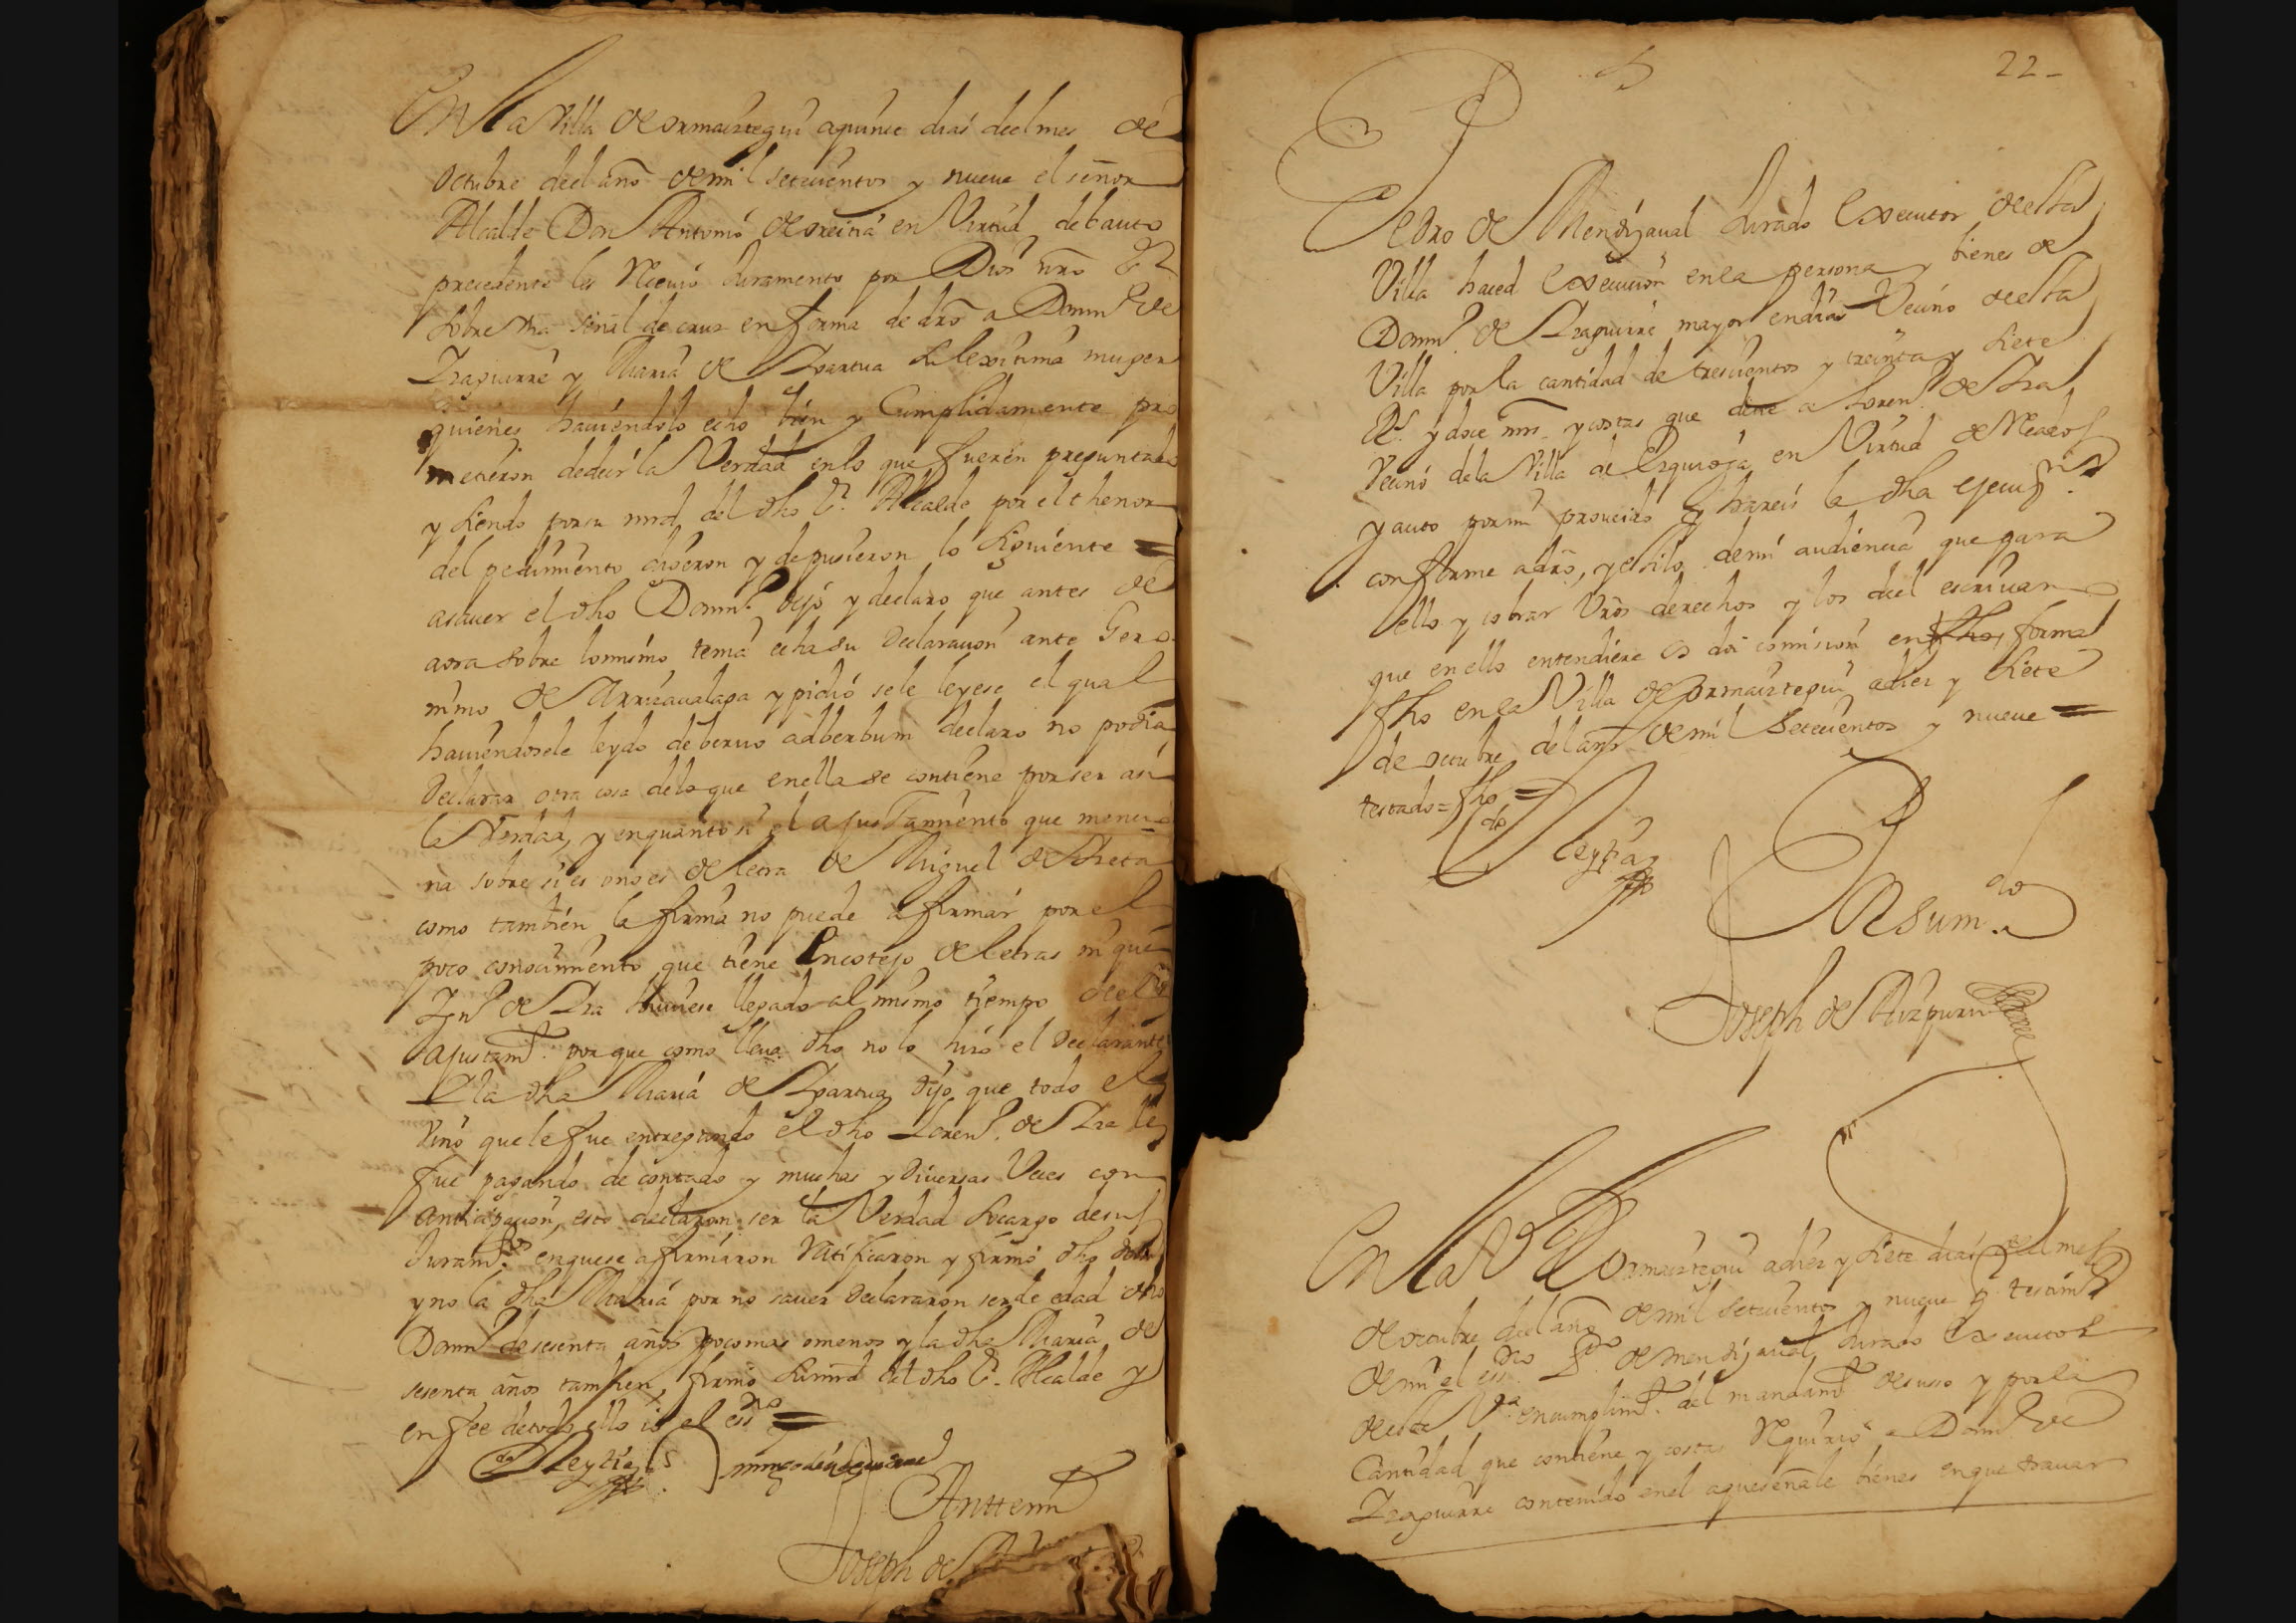 En la Villa de ormaiztegui aquince dias del mes de
octubre del año de mil setecientos y nueve el señor
Alcalde Don Antonio de oreitia en Virtud del auto
precedente les Recivio Juramento por Dios nro Sr
sobre una señal de cruz en forma de dro a Domin.º de
Yzaguirre y Maria de Ypartua su lexitima muger
quienes haviendolo echo bien y Cumplidamente pro
metieron decir la Verdad en lo que fueren preguntados
y siendo por su md del dho Sr. Alcalde por el thenor
del pedimiento dixeron y depusieron lo siguiente =
asaver el dho Domin.º dijo y declaro que antes de
aora sobre lo mismo tenia echa su declaracion ante Gero
nimo de Arrizavalaga y pidió se le leyese el qual
haviendosele leydo de bervo adberbum declaro no podia
declarar otra cosa de lo que en ella se contiene por ser asi
la Verdad, y en quanto a el ajustamiento que mencio
na sobre si es o no es de letra de Miguel de
como tambien la firma no puede afirmar por el
poco conocimiento que tiene En cotejo de letras ni que
de Yza huviese llegado al mismo tiempo del
ajustamto. por que como lleva dho no lo hizo el declarante
Y la dha Maria de Ypartua dijo que todo el
vino que le fue entregando el dho Loren.º de Yza le
fue pagando de contado y muchas y diversas Veces con
anticipacion, esto declararon ser la Verdad so cargo de su
Juramto. en que se afirmaron Ratificaron y firmó dho Domin
y no la dha Maria por no saver declararon ser de edad dho
Domin.º de sesenta años poco mas o menos y la dha Maria de
sesenta años tambien, firmo su md del dho Sr. Alcalde y
en fee de todo ello io el essno =
Oreytia
Anttemi
Joseph de
22-
Pedro de Mendizaval Jurado Executor de esta
Villa haced Execucion en la persona y bienes de
Domin.º de Yzaguirre mayor en dias Vecino de esta
Villa por la cantidad de trescientos y treinta y siete
Rs. y doce mrs y costas que deve a Loren.º de Yza
Vecino de la Villa de Ezquioga en Virtud de
y auto por mi proveido y hareis la dha ejecuon.
conforme a dro, y estilo de mi audiencia que para
ello y cobrar Vros derechos y los del escrivano
que en ello entendiere os doi comision en dha forma
fho en la Villa de ormaiztegui a diez y siete
de octubre del año de mil setecientos y nueve =
testado = fho =
Oreytia
Por su mdo
Joseph de Aizpuru
En la Va de Ormaiztegui a diez y siete dias del mes
de octubre del año de mil setecientos y nueve por testimo
de mi el essno Po. de Mendizaval Jurado Executor
de esta Va. en cumplimto. del mandamto de suso y por la
Cantidad que contiene y costas Requirió a Domin.º de
Yzaguirre contenido en el a que señale bienes en que travar